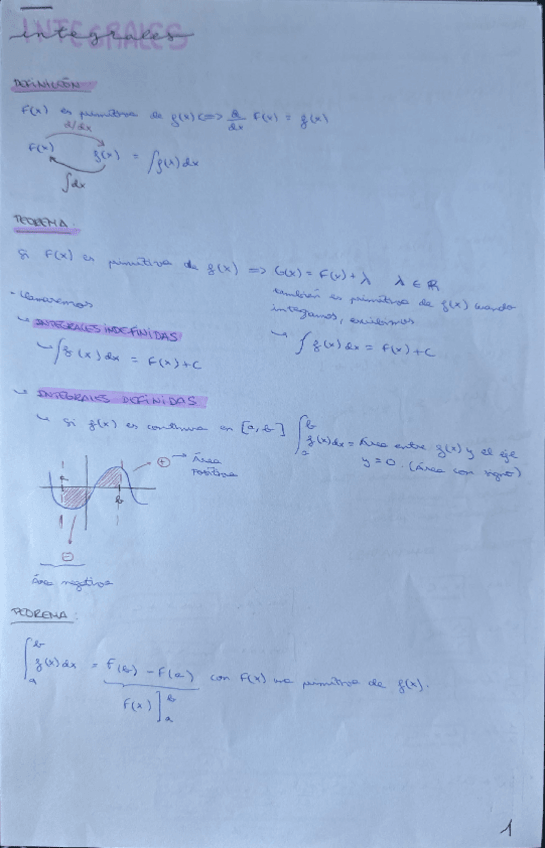 INTEGRALES
integrales
DEFINICIÓN
F(x) es primitiva de f(x) <=> d/dx F(x) = f(x)
d/dx
F(x) f(x) = ∫f(x)dx
∫dx
TEOREMA:
Si F(x) es primitiva de f(x) => G(x) = F(x) + λ λ ∈ ℝ
también es primitiva de f(x) cuando
integamos, escribimos
∫f(x)dx = F(x) + C
· Llamaremos
↳ INTEGRALES INDEFINIDAS
↳ ∫f(x)dx = F(x) + C
↳ INTEGRALES DEFINIDAS
↳ Si f(x) es continua en [a, b] ∫ₐᵇ f(x)dx = Área entre f(x) y el eje
y = 0. (Área con signo)
⊕ → Área
Positiva
a
b
⊖
Área negativa
TEOREMA:
∫ₐᵇ f(x)dx = F(b) - F(a) con F(x) una primitiva de f(x).
F(x)]ₐᵇ
1